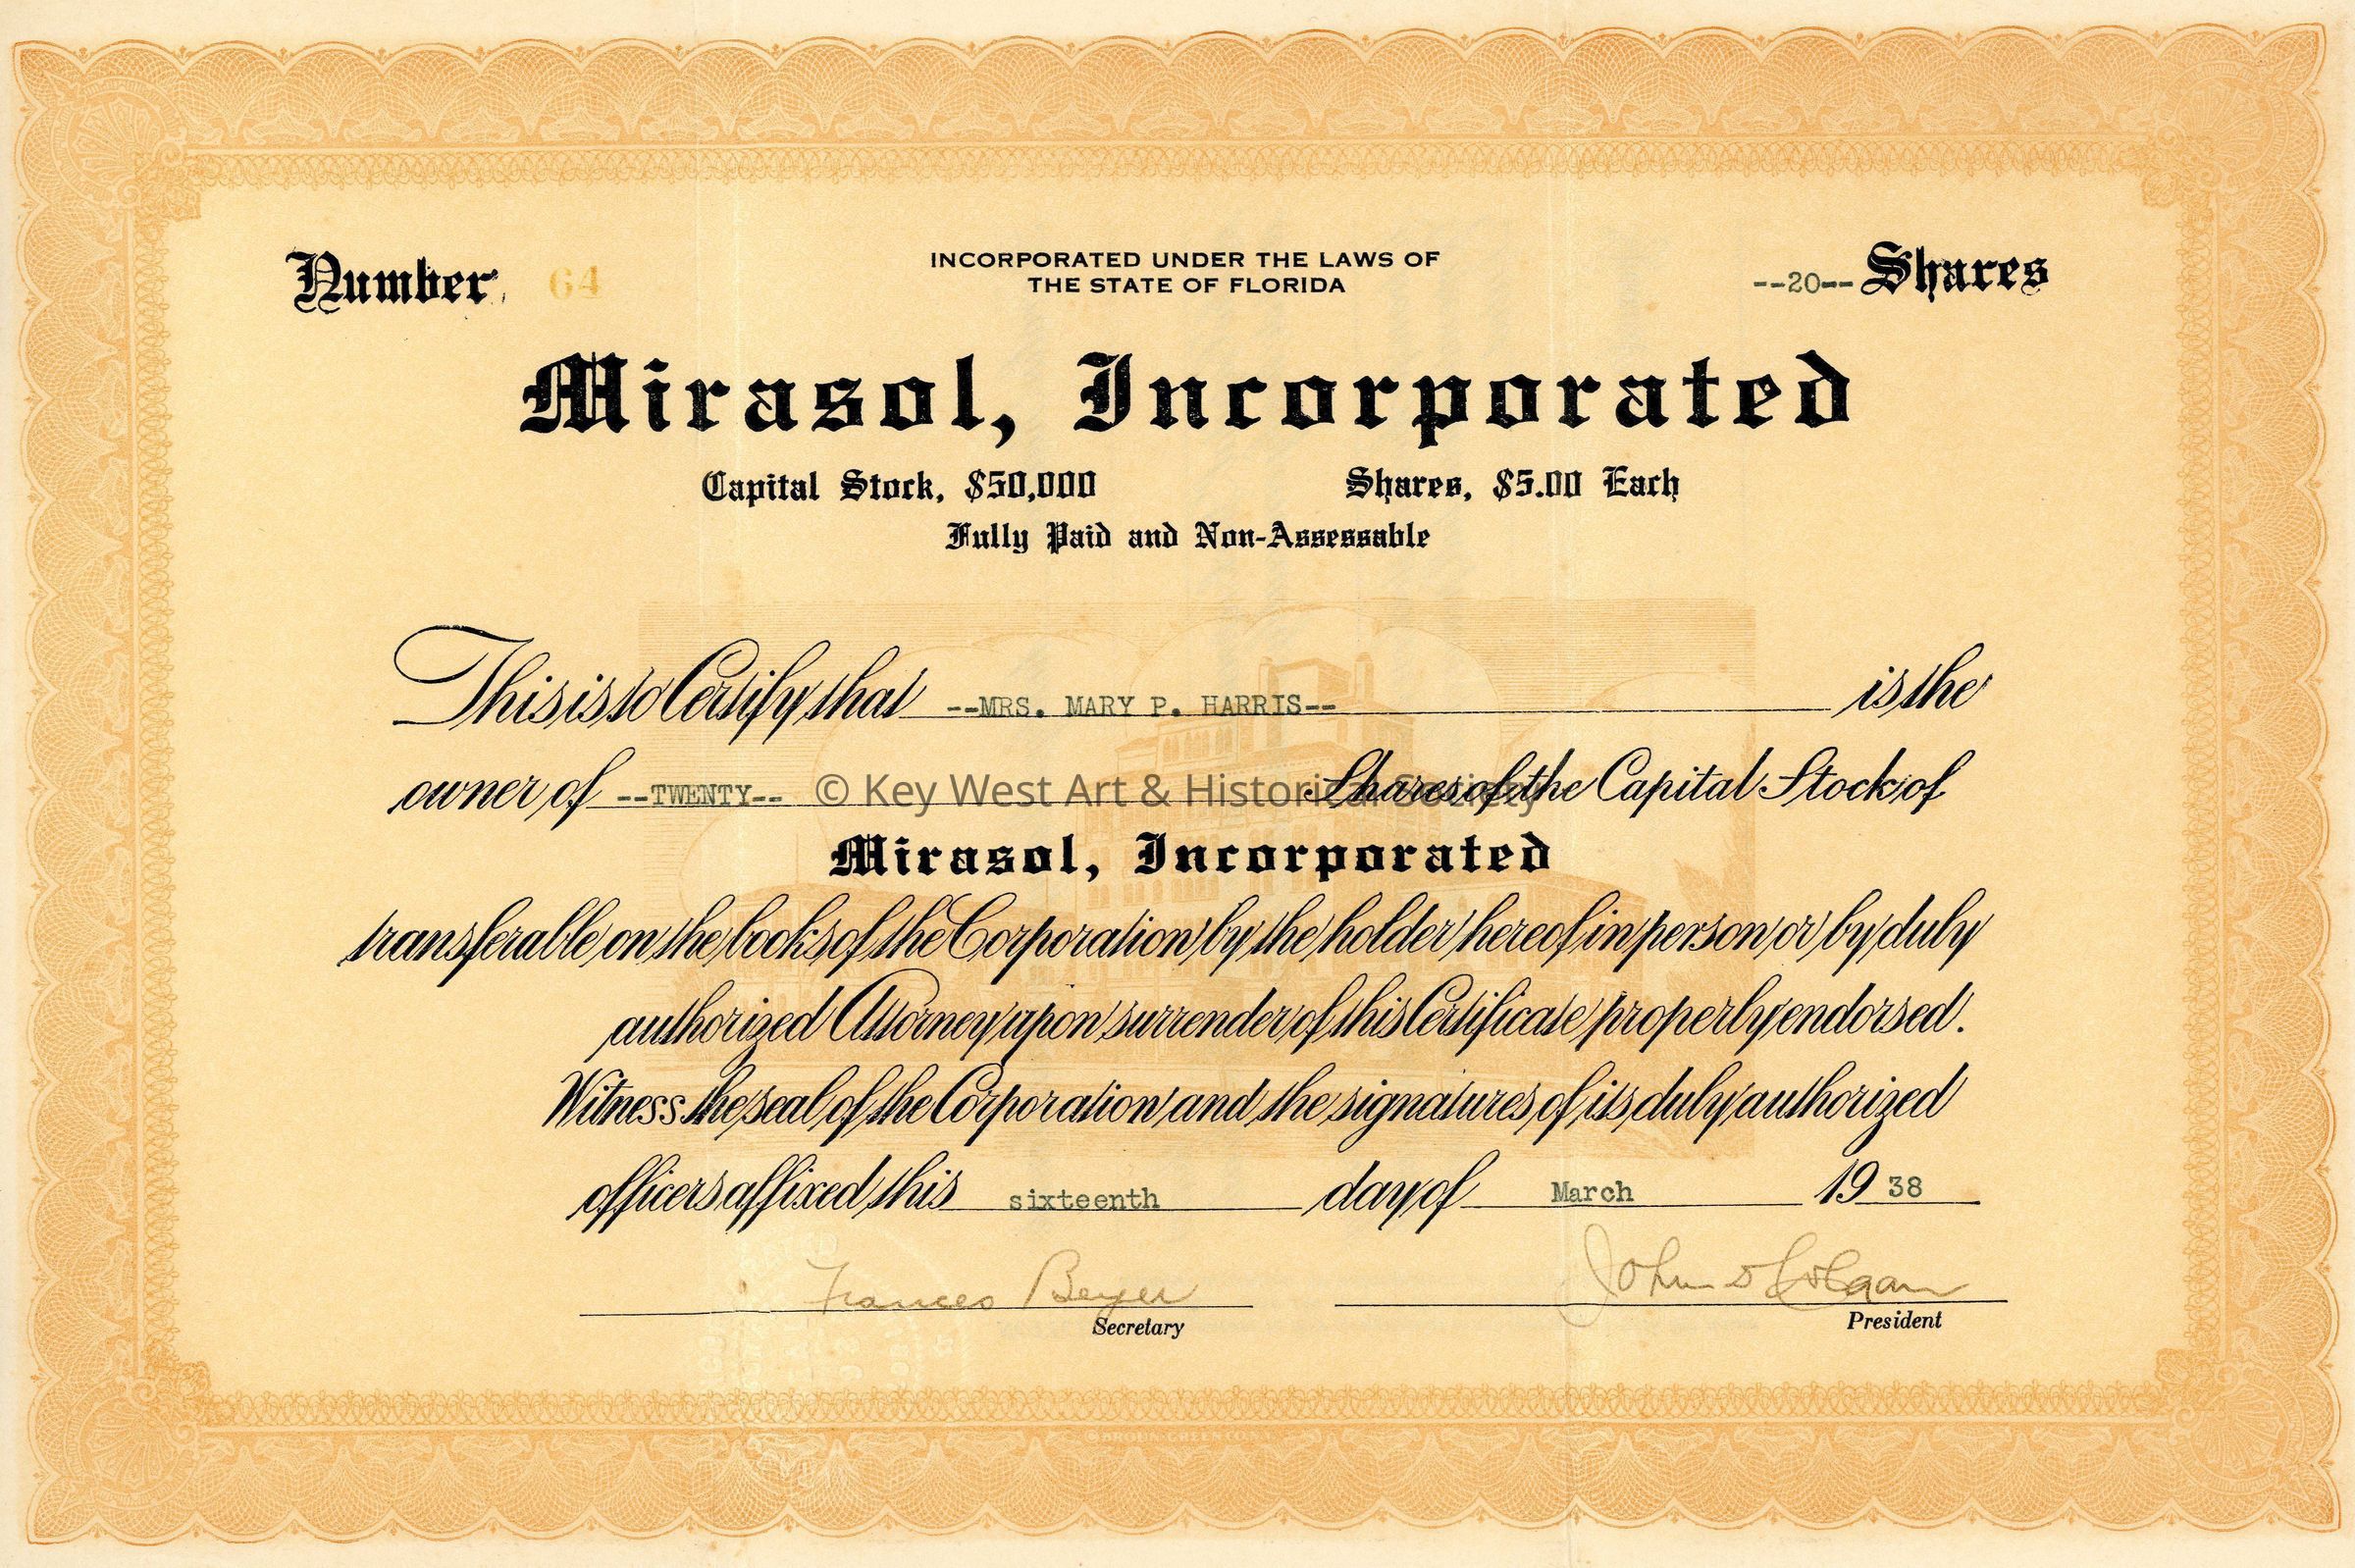 Number 64
INCORPORATED UNDER THE LAWS OF
THE STATE OF FLORIDA
--20-- Shares
Mirasol, Incorporated
Capital Stock, $50,000 Shares, $5.00 Each
Fully Paid and Non-Assessable
This is to Certify that --MRS. MARY P. HARRIS-- is the
owner of --TWENTY-- Shares of the Capital Stock of
© Key West Art & Historical Society
Mirasol, Incorporated
transferable on the books of the Corporation by the holder hereof in person or by duly
authorized Attorney upon surrender of this Certificate properly endorsed.
Witness the seal of the Corporation and the signatures of its duly authorized
officers affixed this sixteenth day of March 19 38
Frances Beyer John
Secretary
President